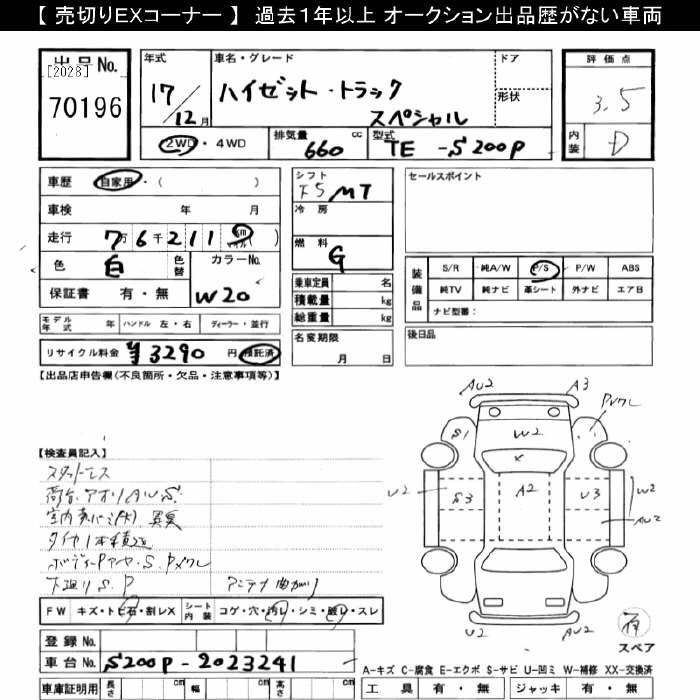 【 売切りEXコーナー 】 過去1年以上 オークション出品歴がない車両
出品No. [2028] 70196
年式 17/12月
車名・グレード ハイゼット・トラック スペシャル
ドア
形状
評価点 3.5
内装 D
2WD・4WD
排気量 660 cc
型式 TE -S200P
車歴 自家用・( )
車検 年 月
走行 7万6千211 km マイル ( )
色 白 色替
カラーNo. W20
保証書 有・無
モデル年式 年 ハンドル 左・右 ディーラー・並行
リサイクル料金 ¥3290 円 預託済
シフト F5 MT
冷房
燃料 G
乗車定員 名
積載量 kg
総重量 kg
名変期限 月 日
セールスポイント
装備品 S/R 純A/W P/S P/W ABS
純TV 純ナビ 革シート 外ナビ エアB
ナビ型番:
後日品
【出品店申告欄(不良箇所・欠品・注意事項等)】
【検査員記入】
スタッドレス
荷台、アオリAU.S.
タイヤ1本積込
下廻りS.P
アンテナ曲がり
FW キズ・トビ石・割レX シート内装 コゲ・穴・汚レ・シミ・破レ・スレ
登録No.
車台No. S200P-2023241
車庫証明用 長さ cm 幅 cm 高さ cm
AU2 A3
S1 W2 Pメクレ
U2 S3 A2 U3 W2
AU2
U2 AU2
スペア
A-キズ C-腐食 E-エクボ S-サビ U-凹ミ W-補修 XX-交換済
工具 有・無 ジャッキ 有・無